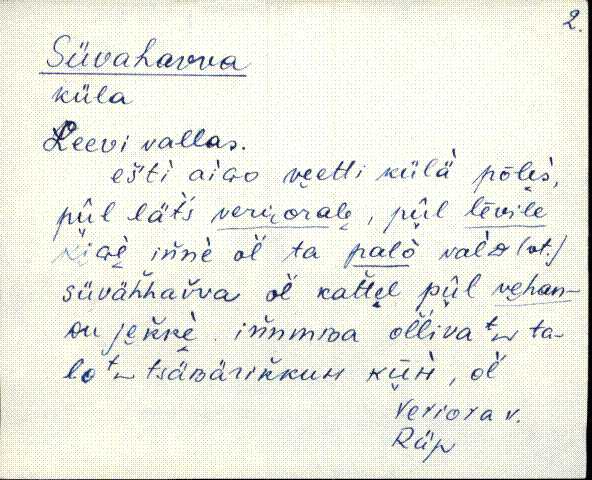 2.
Süvahavva
küla
Leevi vallas.
ešti aiɢo veetti külà pōlès,
pûl läťs veriorale, pûl lēvile
iňnè oĺ ta palò valD (ot.)
süväȟhavva oĺ kattel pûl vehan-
Du jeǩkè. iňnmiva olliva t ta-
lo t tsäʙäriňkuH küH, oĺ
Veriora v.
Rüp